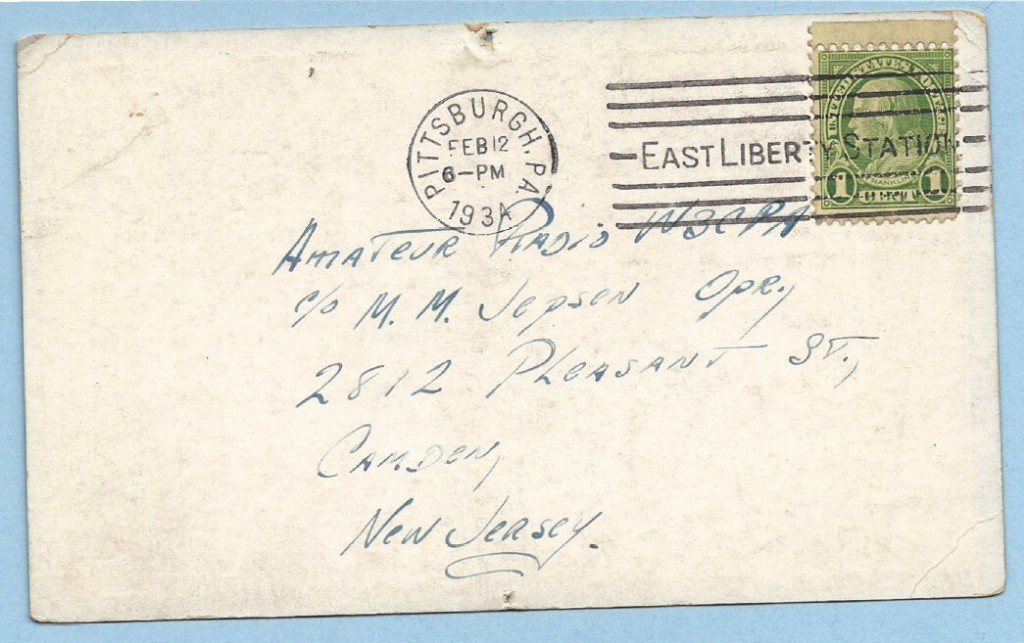 PITTSBURGH, PA.
FEB 12
6-PM
1934
EAST LIBERTY STATION
UNITED STATES POSTAGE
FRANKLIN
1 CENT 1
Amateur Radio W3CPA
c/o M. M. Jepsen Opr.,
2812 Pleasant St.,
Camden,
New Jersey.